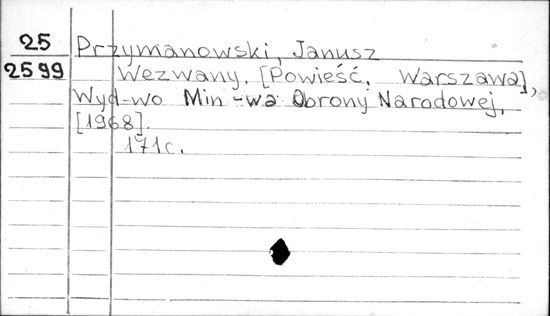 25 Przymanowski, Janusz
2599 Wezwany. [Powieść. Warszawa],
Wyd-wo Min-wa Obrony Narodowej,
[1968].
171c.